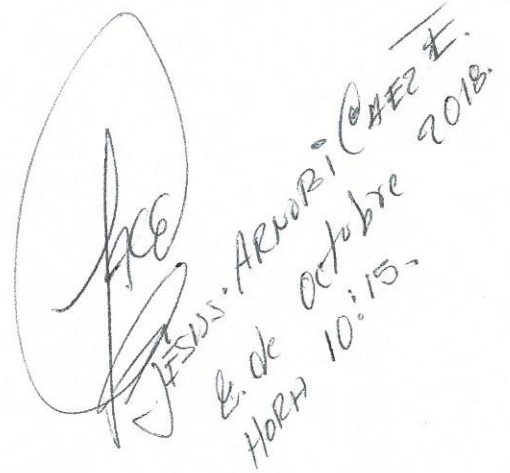 ACE
JESUS. ARNOBI CAEZ E.
8. de octubre 2018.
HORA 10:15.